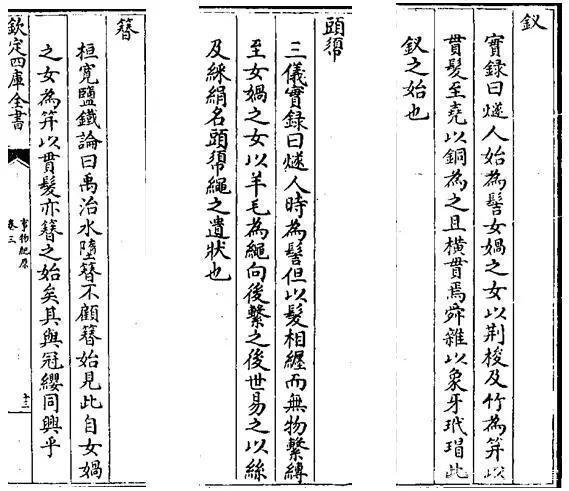 釵
實録曰燧人始為髻女媧之女以荆梭及竹為笄以
貫髮至堯以銅為之且横貫焉舜雜以象牙玳瑁此
釵之始也
頭𢄼
三儀實録曰燧人時為髻但以髮相纏而無物繫縛
至女媧之女以羊毛為繩向後繫之後世易之以絲
及綵絹名頭𢄼繩之遺狀也
簪
桓寛鹽鐵論曰禹治水墮簪不顧簪始見此自女媧
之女為笄以貫髮亦簪之始矣其與冠纓同興乎
欽定四庫全書
事物紀原
卷三
十三